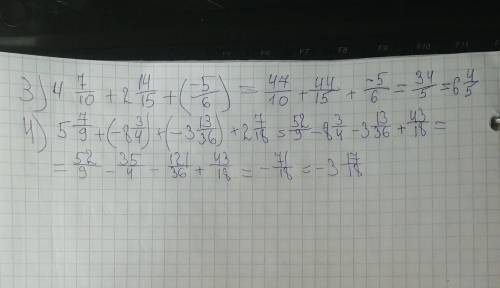 3) 4 7/10 + 2 14/15 + (-5/6) = 47/10 + 44/15 + -5/6 = 34/5 = 6 4/5
4) 5 7/9 + (-8 3/4) + (-3 13/36) + 2 7/18 = 52/9 - 8 3/4 - 3 13/36 + 43/18 =
= 52/9 - 35/4 - 121/36 + 43/18 = - 71/18 = -3 17/18